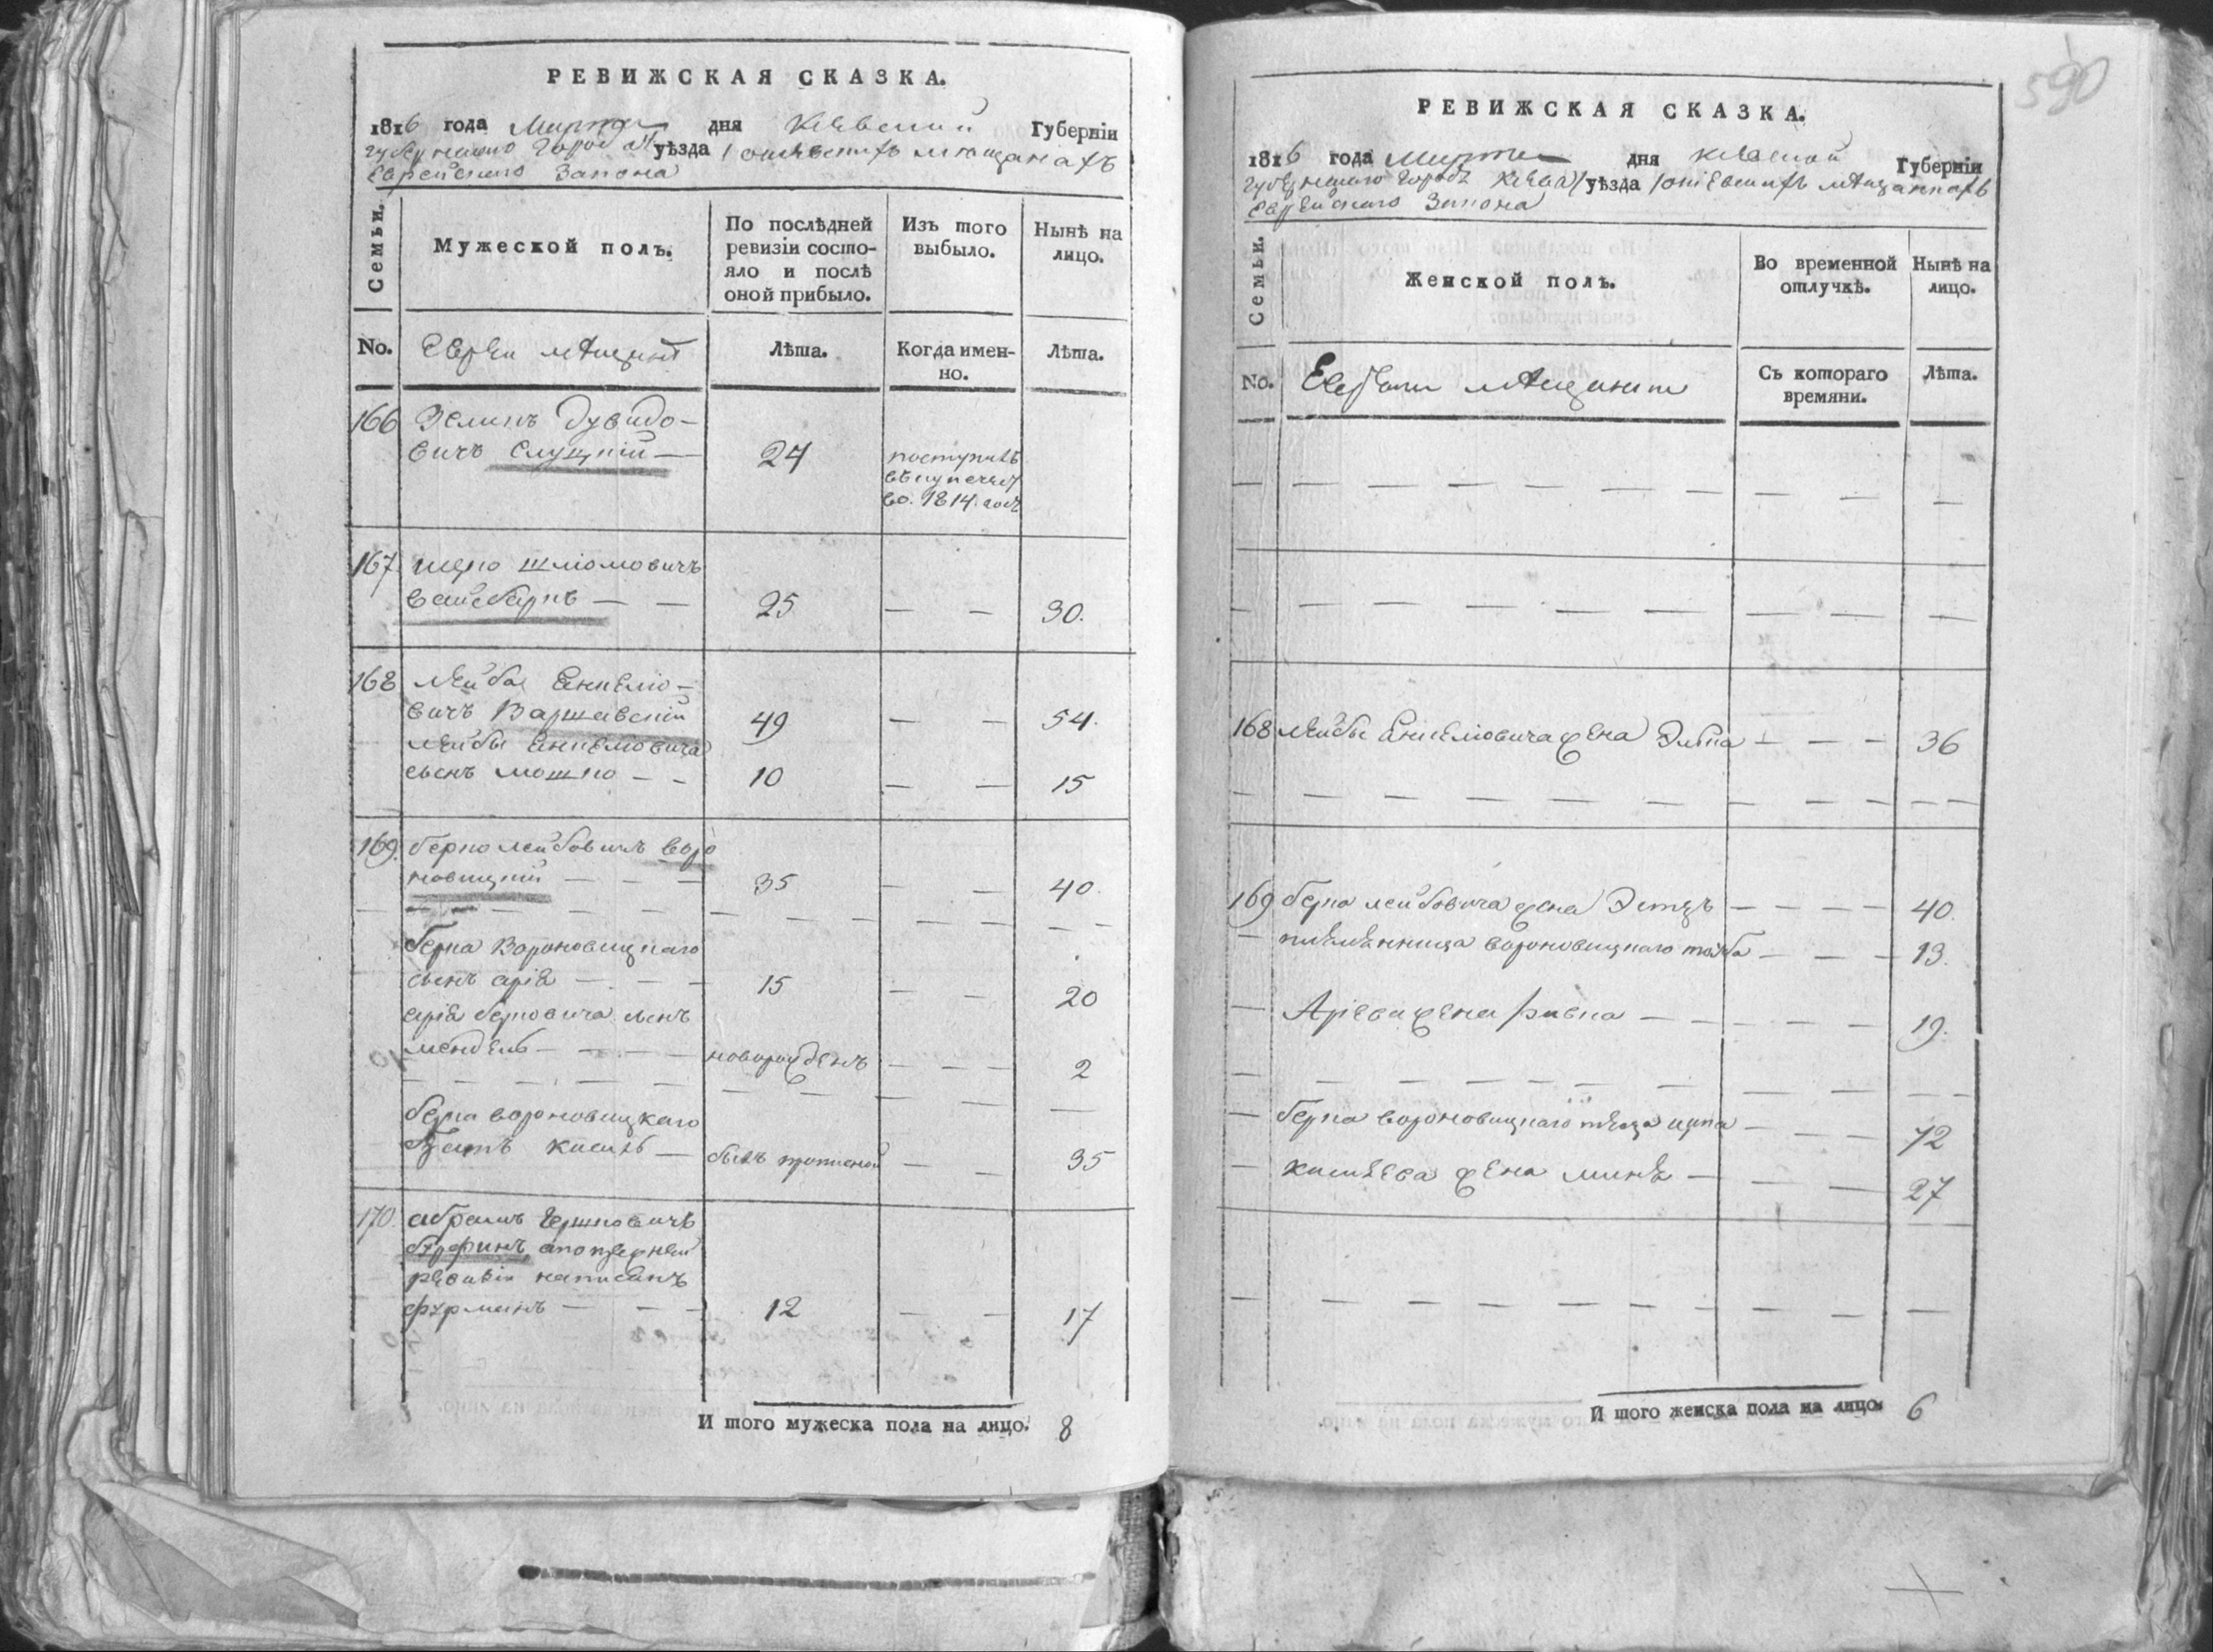 РЕВИЖСКАЯ СКАЗКА.
1816 года Марта дня Киевской Губерніи
губернскаго города уѣзда о киевскихъ мещанахъ
Еврейскаго Закона
Семьи.
Мужеской полъ.
По послѣдней
ревизіи состо-
яло и послѣ
оной прибыло.
Изъ того
выбыло.
Нынѣ на
лицо.
No.
Евреи мѣщане
Лѣта.
Когда имен-
но.
Лѣта.
166 Зелигъ Дувидо-
вичъ Слуцкій — 24
поступилъ
въ купечест
во. 1814. годѣ
167. Ицко Шліомовичъ
Вайсбаргъ — — 25 — — 30.
168 Лейба Янкеліо-
вичъ Варшавскій 49 — — 54.
Лейбы Янкеліовича
сынъ Мошко — — 10 — — 15
169. Берко Лейбовичъ Воро
новицкій — — — 35 — — 40.
Берка Вороновицкаго
сынъ Аріе — — — 15 — — 20
Аріе Берковича сынъ
Мендель — — — новорожденъ — — — 2
Берка Вороновицкаго
зять Касиль — былъ прописной — — 35
170. Абрамъ Гершковичъ
ревизіи написанъ
Фурманъ — — — 12 — — 17
И того мужеска пола на лицо. 8
590
РЕВИЖСКАЯ СКАЗКА.
1816 года Марта дня Киевской Губерніи
губернскаго города Киева уѣзда о киевскихъ мѣщанахъ
Еврейскаго Закона
Семьи.
Женской полъ.
Во временной
отлучкѣ.
Нынѣ на
лицо.
No.
Еврейки мѣщанки
Съ котораго
времяни.
Лѣта.
168 Лейбы Янкеліовича жена Элька — — — 36
169 Берка Лейбовича жена Эстеръ — — — — 40.
— племѣнница Вороновицкаго Тойба — — — 13.
— Аріева жена Ривка — — — — — 19.
— Берка Вороновицкаго теща Ципа — — — 72
— Касилева жена Миня — — — 27
И того женска пола на лицо 6